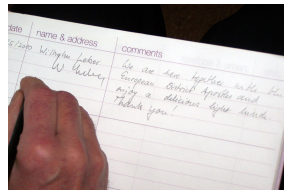 date name & address comments
5/2010 Wilhelm Leber We are here together with the
W. Leber European District Apostles and
enjoy a delicious light lunch.
Thank you!